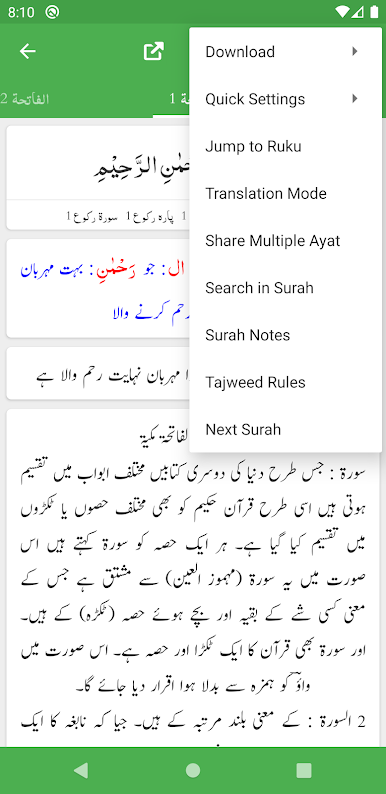 8:10
Download
Quick Settings
Jump to Ruku
Translation Mode
Share Multiple Ayat
Search in Surah
Surah Notes
Tajweed Rules
Next Surah
1 الفاتحة 2
الرَّحِيْمِ
1 پارہ رکوع 1 سورۃ رکوع 1
ال : جو رَحْمٰنِ : بہت مہربان
رحم کرنے والا
مہربان نہایت رحم والا ہے
الفاتحۃ مکیۃ
سورۃ : جس طرح دنیا کی دوسری کتابیں مختلف ابواب میں تقسیم
ہوتی ہیں اسی طرح قرآن حکیم کو بھی مختلف حصوں یا ٹکڑوں
میں تقسیم کیا گیا ہے۔ ہر ایک حصہ کو سورۃ کہتے ہیں اس
صورت میں یہ سورۃ (مہموز العین) سے مشتق ہے جس کے
معنی کسی شے کے بقیہ اور بچے ہوئے حصہ (ٹکڑہ) کے ہیں۔
اور سورۃ بھی قرآن کا ایک ٹکڑا اور حصہ ہے۔ اس صورت میں
واؤ کو ہمزہ سے بدلا ہوا اقرار دیا جائے گا۔
2 السورۃ : کے معنی بلند مرتبہ کے ہیں۔ جیا کہ نابغہ کا ایک